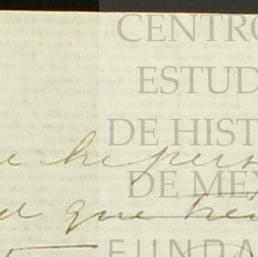 CENTRO
ESTUD
DE HIST
e he pers
DE MÉX
d que
FUNDA